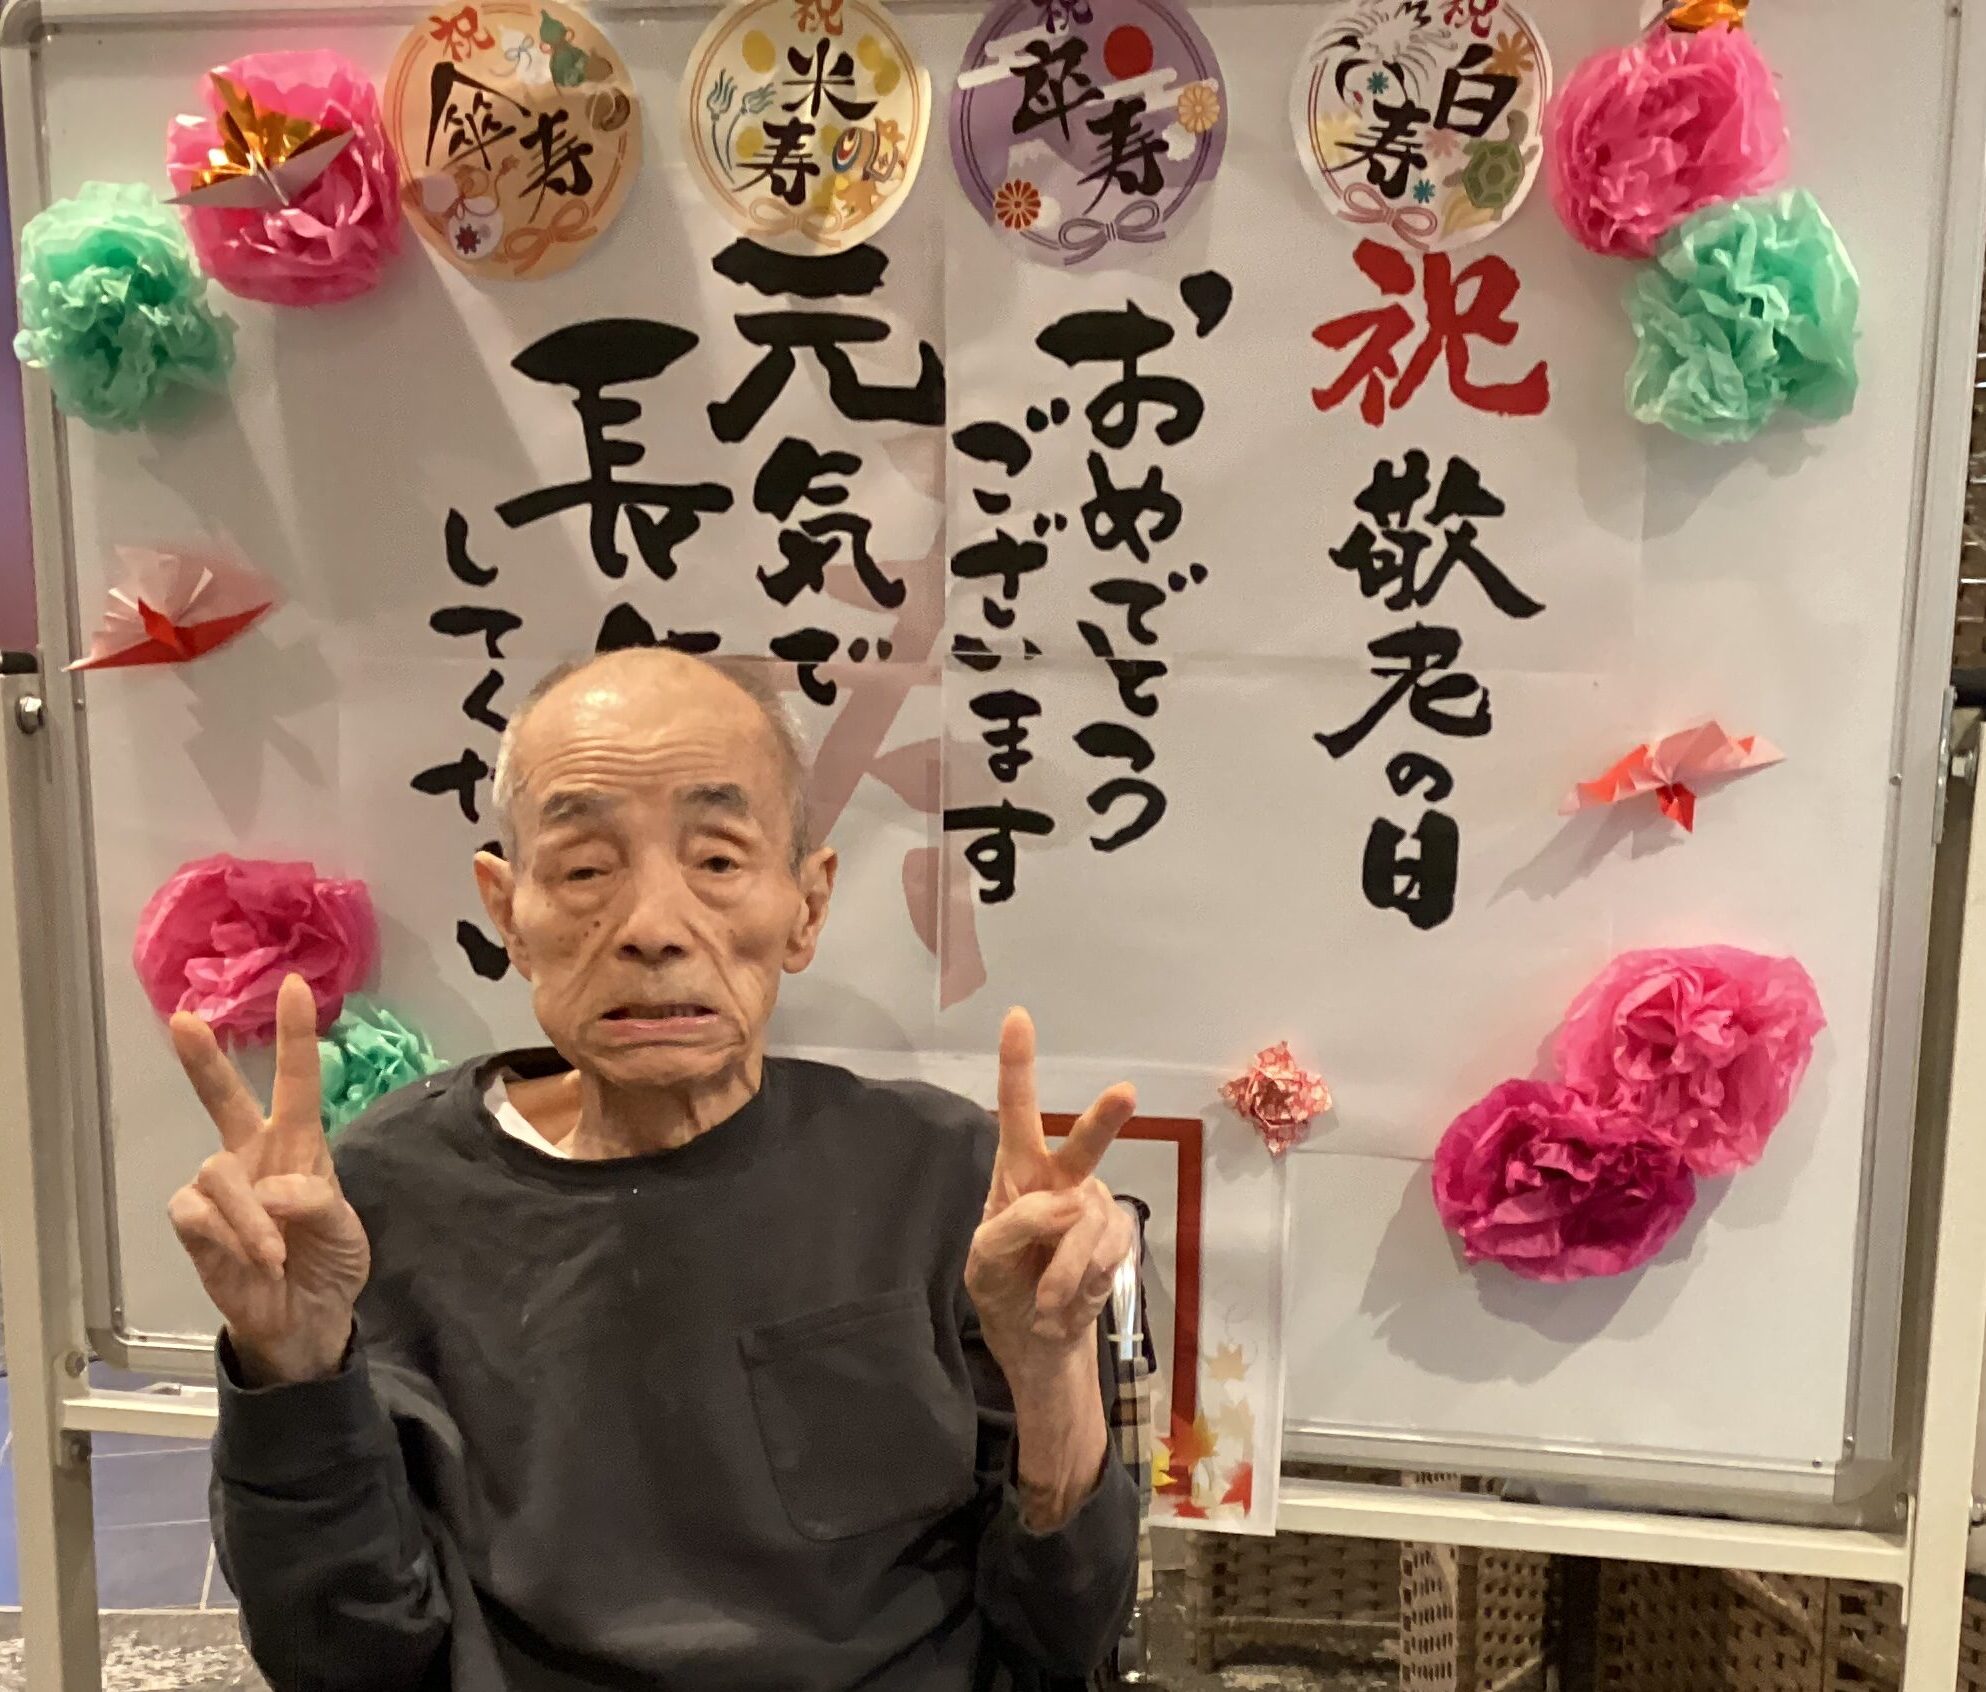 祝
白寿
祝
卆寿
祝
米寿
祝
傘寿
祝
敬老の日
おめでとう
ございます
元気で
長
してくださ